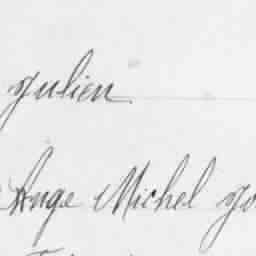 Julien
Ange Michel